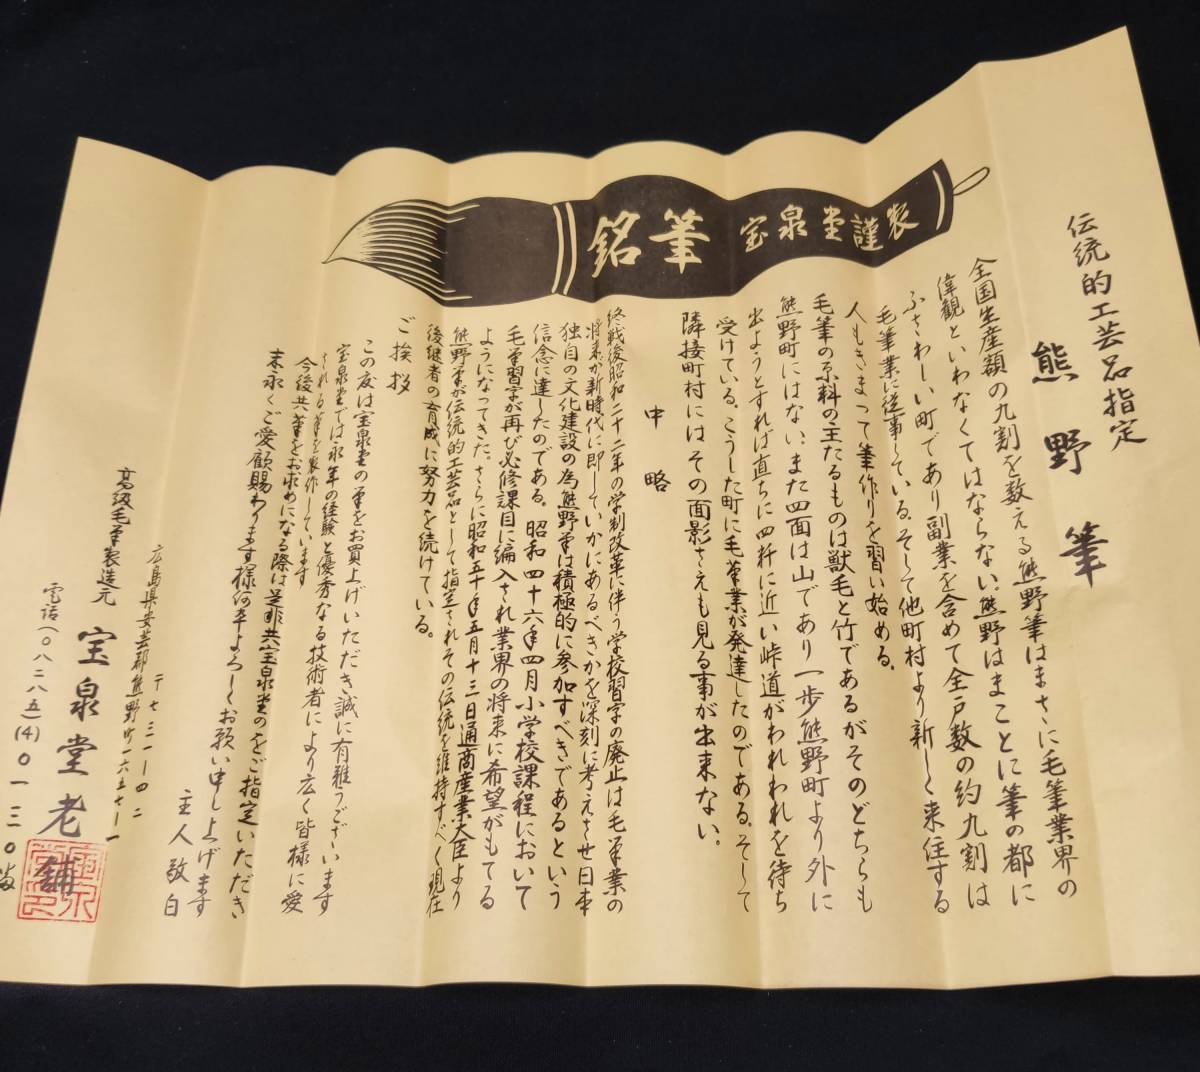 伝統的工芸品指定
熊野筆
銘筆 宝泉堂謹製
全国生産額の九割を数える熊野筆はまさに毛筆業界の
偉観といわなくてはならない。熊野はまことに筆の都に
ふさわしい町であり副業を含めて全戸数の約九割は
毛筆業に従事している。そして他町村より新しく来住する
人もきまって筆作りを習い始める。
毛筆の原料の主たるものは獣毛と竹であるがそのどちらも
熊野町にはない、また四面は山であり一歩熊野町より外に
出ようとすれば直ちに四粁に近い峠道がわれわれを待ち
受けている。こうした町に毛筆業が発達したのである。そして
隣接町村にはその面影さえも見る事が出来ない。
中略
終戦後昭和二十二年の学制改革に伴う学校習字の廃止は毛筆業の
将来が新時代に即していかにあるべきかを深刻に考えさせ日本
独自の文化建設の為熊野筆は積極的に参加すべきであるという
信念に達したのである。昭和四十六年四月小学校課程において
毛筆習字が再び必修課目に編入され業界の将来に希望がもてる
ようになってきた。さらに昭和五十年五月十三日通商産業大臣より
熊野筆が伝統的工芸品として指定されその伝統を維持すべく現在
後継者の育成に努力を続けている。
ご挨拶
この度は宝泉堂の筆をお買上げいただき誠に有難うございます
宝泉堂では永年の経験と優秀なる技術者により広く皆様に愛
される筆を製作しています
今後共筆をお求めになる際は是非共宝泉堂のをご指定いただき
末永くご愛顧賜わります様何卒よろしくお願い申し上げます
主人敬白
〒七三一-四二
広島県安芸郡熊野町一六五七-一
高級毛筆製造元 宝泉堂老舗
電話(〇八二八五)(4)〇一三〇番